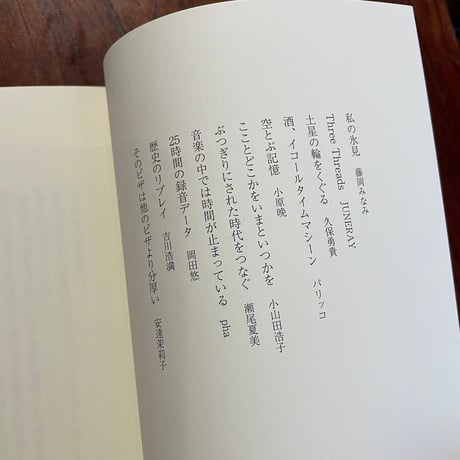 私の氷見　藤岡みなみ
Three Threads　JUNERAY
土星の輪をくぐる　久保勇貴
酒、イコールタイムマシーン　パリッコ
空とぶ記憶　小原晩
こことどこかをいまといつかを　小山田浩子
ぶつぎりにされた時代をつなぐ　瀬尾夏美
音楽の中では時間が止まっている　pha
25時間の録音データ　岡田悠
歴史のリプレイ　吉川浩満
そのピザは他のピザより分厚い　安達茉莉子